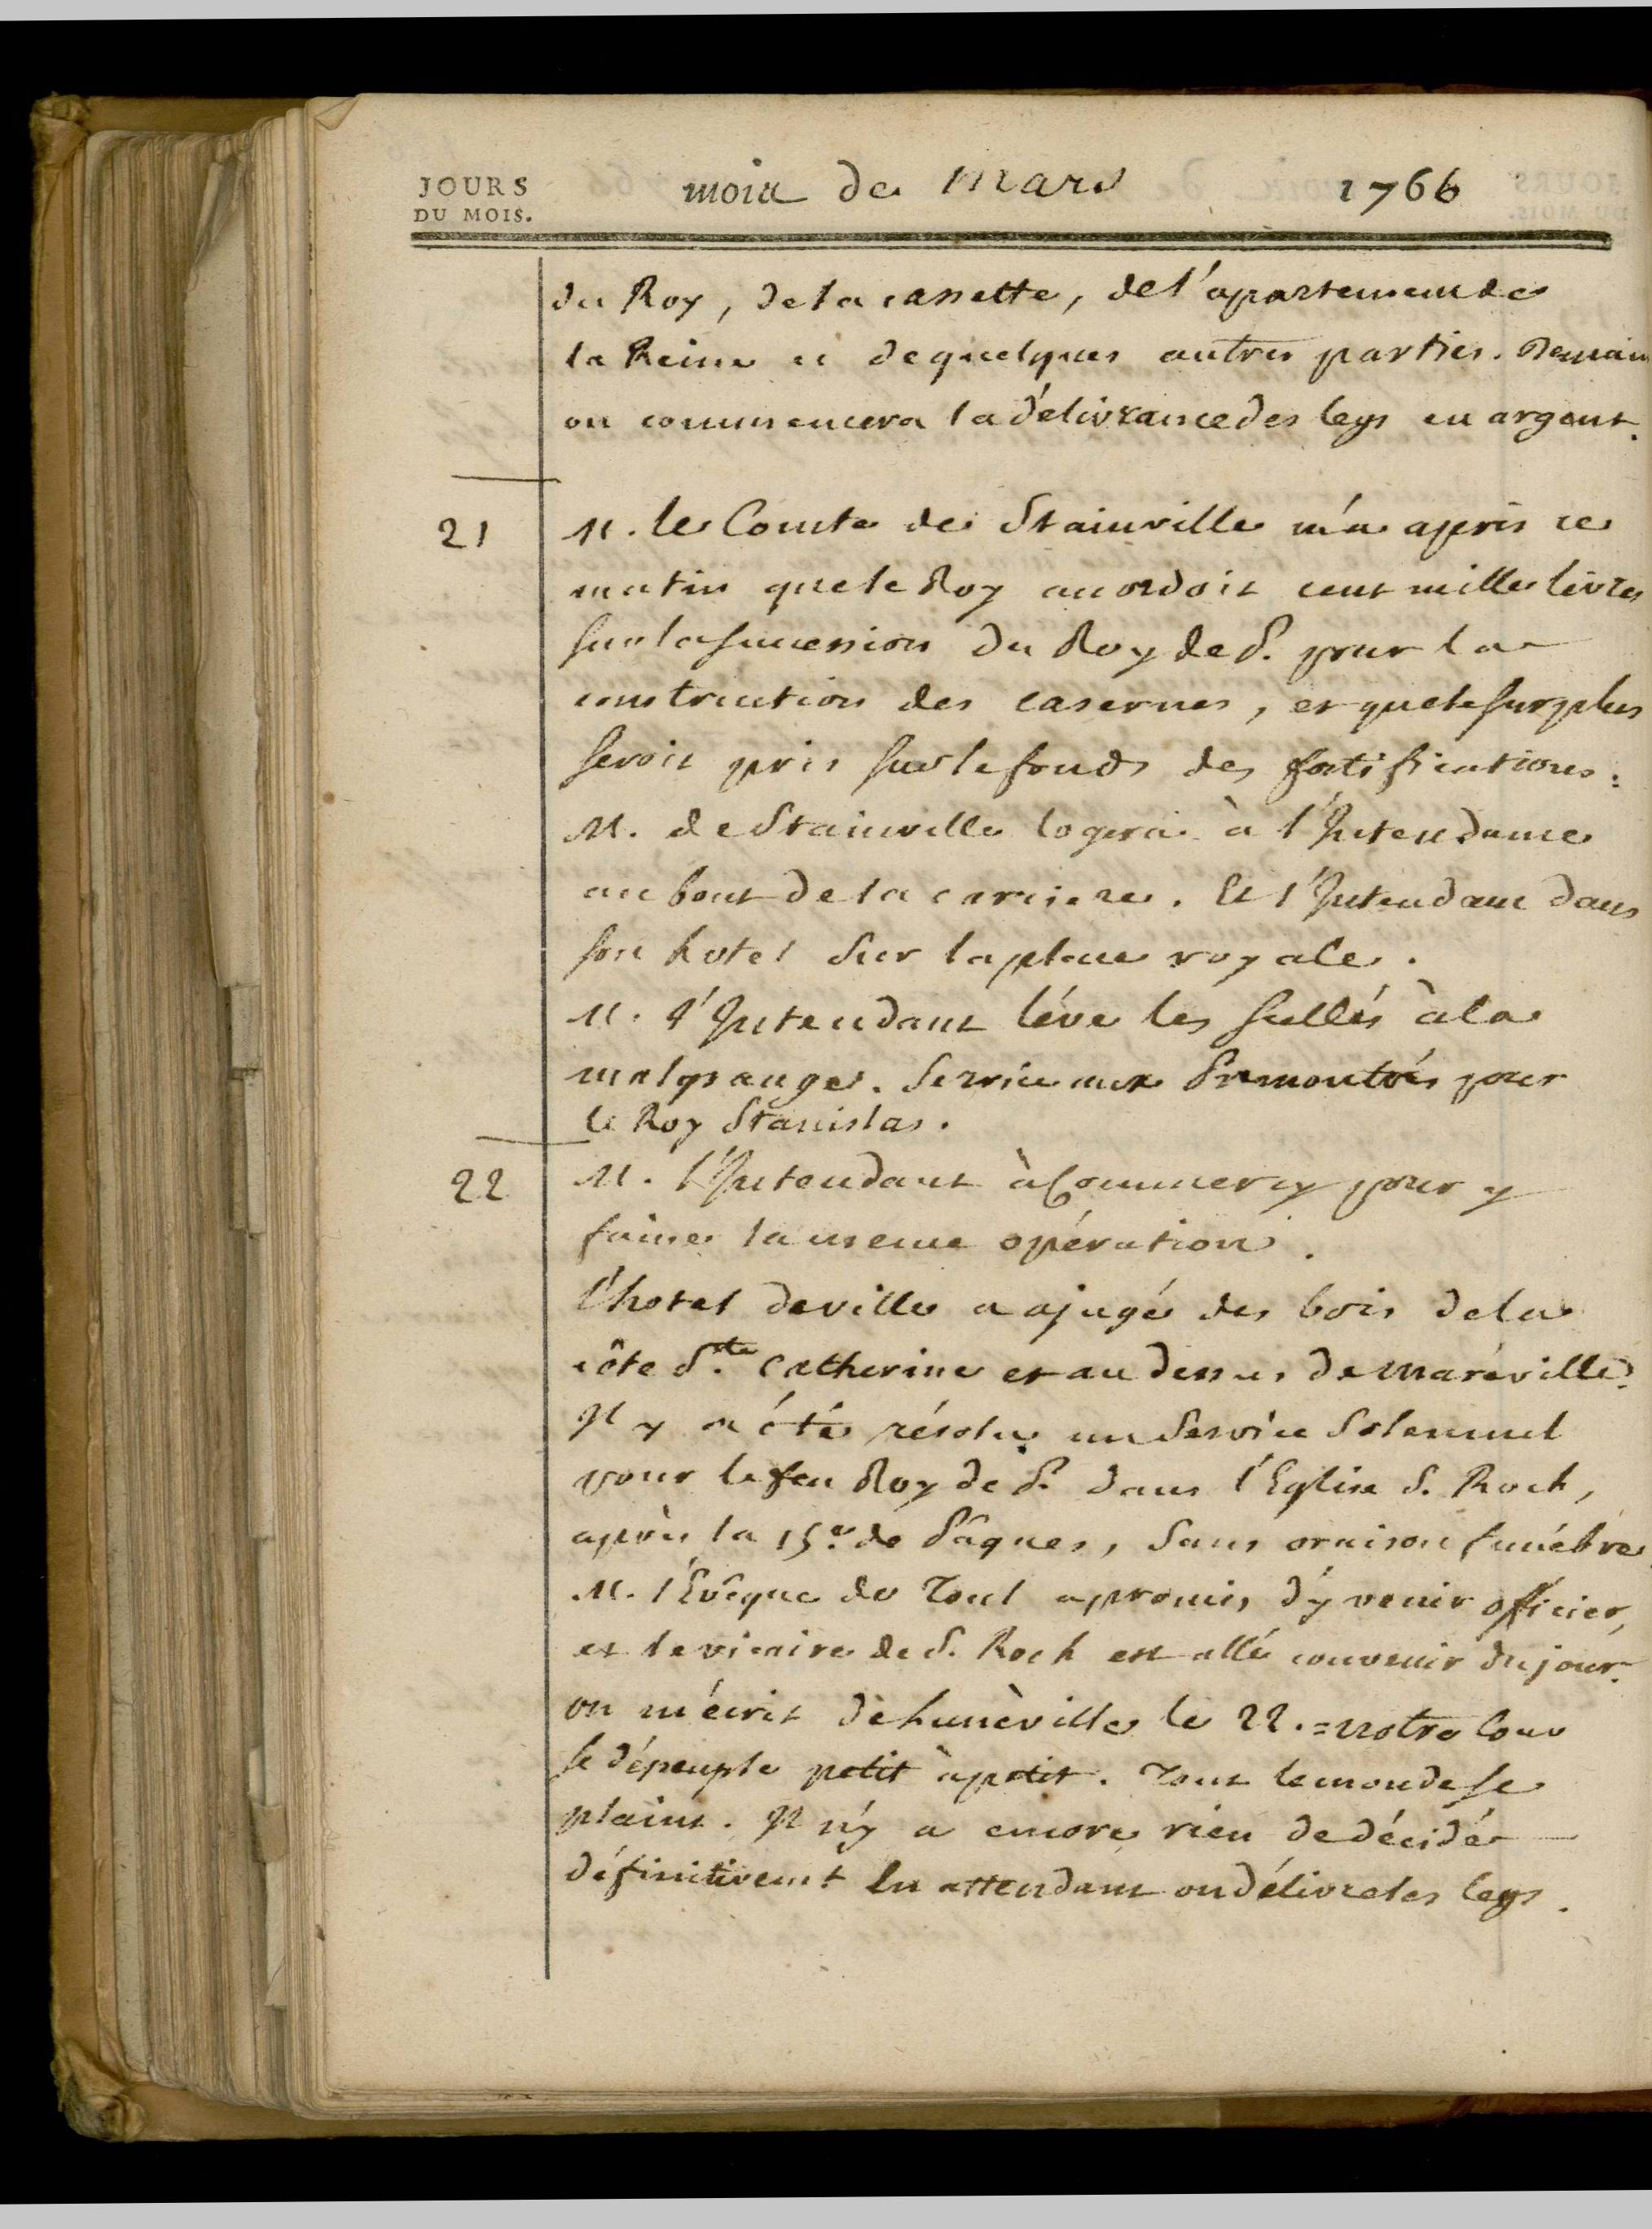 JOURS
DU MOIS.
mois de Mars 1766
du Roy, de la cassette, de l'apartement de
la Reine et de quelques autres parties. Demain
on commencera la délivrance des legs en argent.
21 M. le Comte de Stainville m'a apris ce
matin que le Roy acordoit cent mille livres
sur la succession du Roy de P. pour la
construction des casernes, et que le surplus
seroit pris sur le fonds des fortifications.
M. de Stainville logera à l'Intendance
au bout de la carriere. Et l'Intendant dans
son hotel sur la place royale.
M. l'Intendant léve les scellés à la
malgrange. Service aux Prémontrés pour
le Roy Stanislas.
22 M. l'Intendant à Commercy pour y
faire la meme opération.
l'hotel de ville a ajugé des bois de la
côte Ste Catherine et au dessus de Maréville.
Il y a été résolu un Service Solemnel
pour le feu Roy de P. dans l'Eglise S. Roch,
après la 15e de Pâques, sans oraison funébre
M. l'Evêque de Toul a promis d'y venir officier,
et le vicaire de S. Roch est allé convenir du jour.
on m'écrit de Lunéville le 22. = notre Cour
se dépeuple petit à petit. Tout le monde se
plaint. Il n'y a encore rien de décidé
définitivemt. En attendant on délivre les legs.